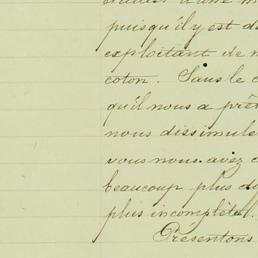 puisqu'il y est d
exploitant de
coton. Sans le c
qu'il nous a prê
nous dissimule
vous nous avez
beaucoup plus d
plus incomplète
Présentons